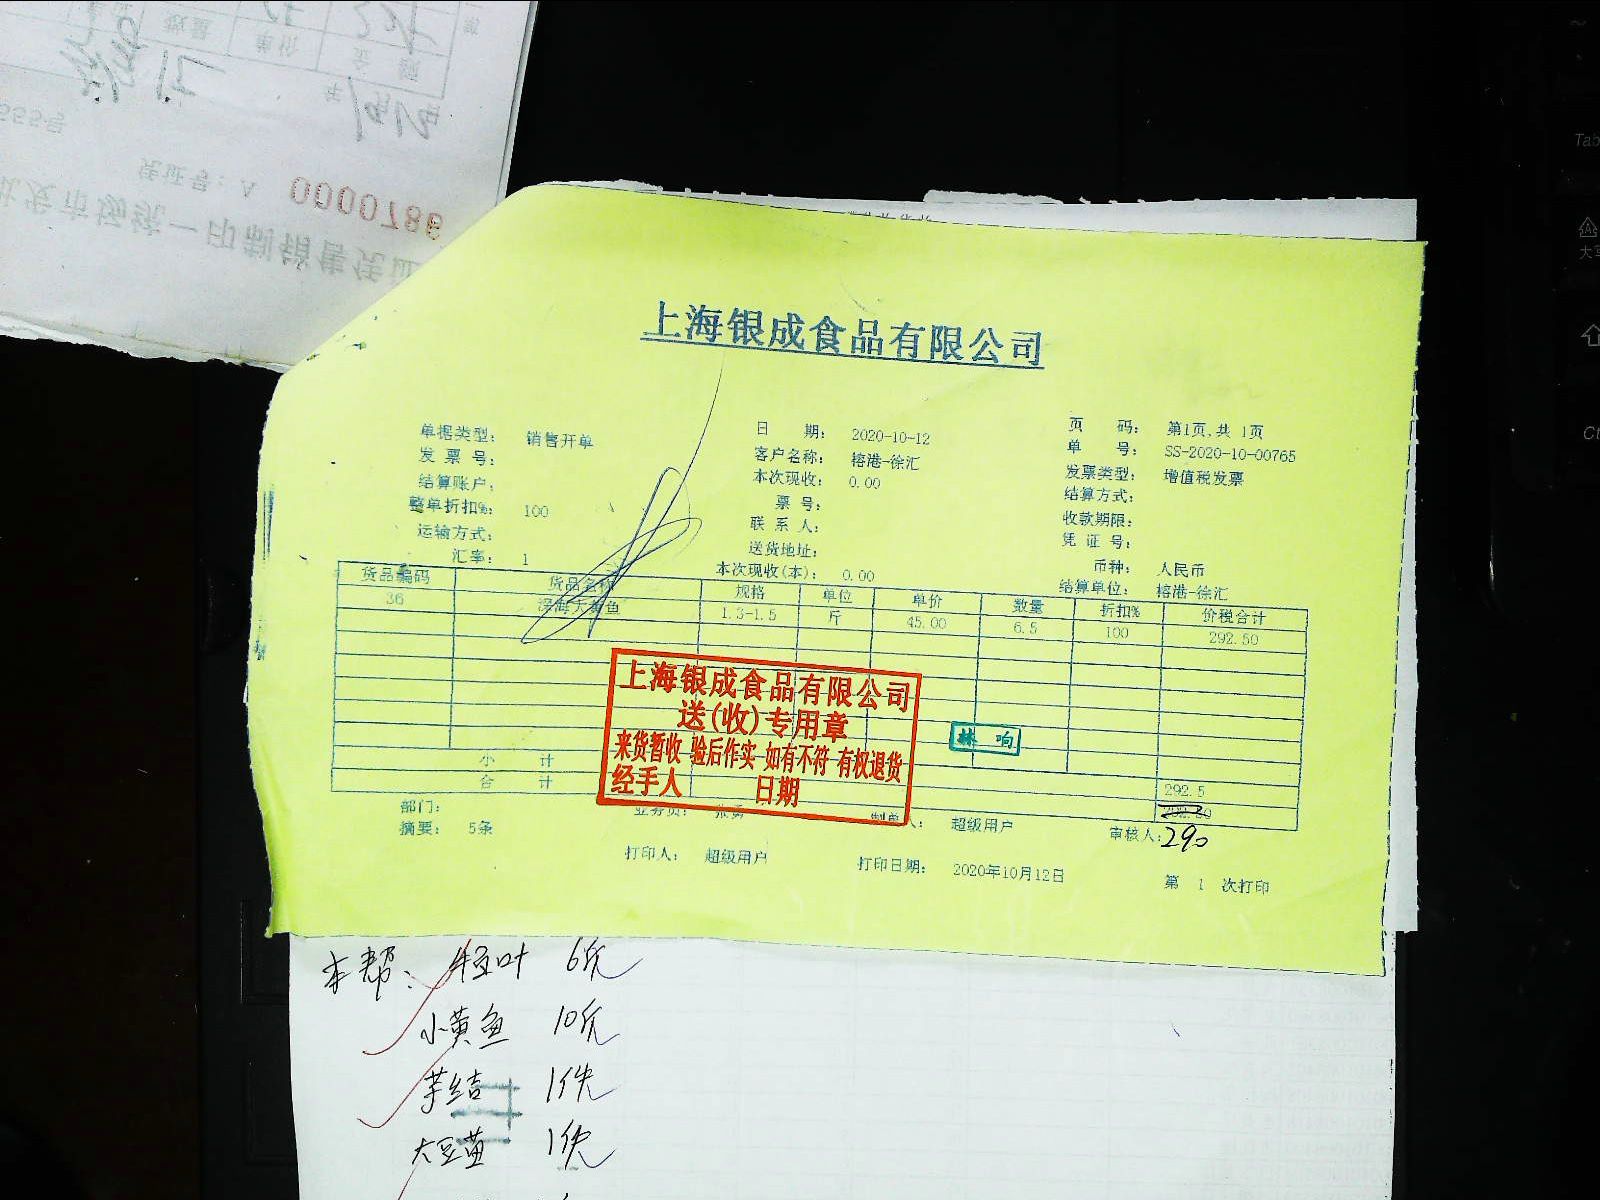 凭证号：A 0000786
批发市场统一印制销售凭证
上海银成食品有限公司
单据类型： 销售开单 日 期： 2020-10-12 页 码： 第1页,共 1页
发 票 号： 客户名称： 榕港-徐汇 单 号： SS-2020-10-00765
结算账户： 本次现收： 0.00 发票类型： 增值税发票
整单折扣%： 100 票 号： 结算方式：
运输方式： 联 系 人： 收款期限：
汇率： 1 送货地址： 凭 证 号：
本次现收(本)： 0.00 币种： 人民币
结算单位： 榕港-徐汇
货品编码 货品名称 规格 单位 单价 数量 折扣% 价税合计
36 深海大黄鱼 1.3-1.5 斤 45.00 6.5 100 292.50
上海银成食品有限公司
送(收)专用章
来货暂收 验后作实 如有不符 有权退货
经手人 日期
林 响
小 计 292.5
合 计
290
部门： 业务员： 张勇 制单人： 超级用户 审核人：
摘要： 5条
打印人： 超级用户 打印日期： 2020年10月12日 第 1 次打印
本帮： 6斤
小黄鱼 10斤
芋结 1件
大豆黄 1件